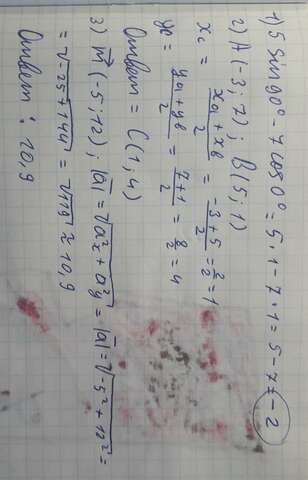 1) 5 Sin 90° - 7 cos 0° = 5 · 1 - 7 · 1 = 5 - 7 = -2
2) A (-3; 7); B (5; 1)
xc = xa + xb / 2 = -3 + 5 / 2 = 2/2 = 1
yc = ya + yb / 2 = 7 + 1 / 2 = 8/2 = 4
Ответ = C (1; 4)
3) m⃗ (-5; 12); |a̅| = √a²x + a²y = |a̅| = √-5² + 12² =
= √-25 + 144 = √119 ≈ 10,9
Ответ: 10,9